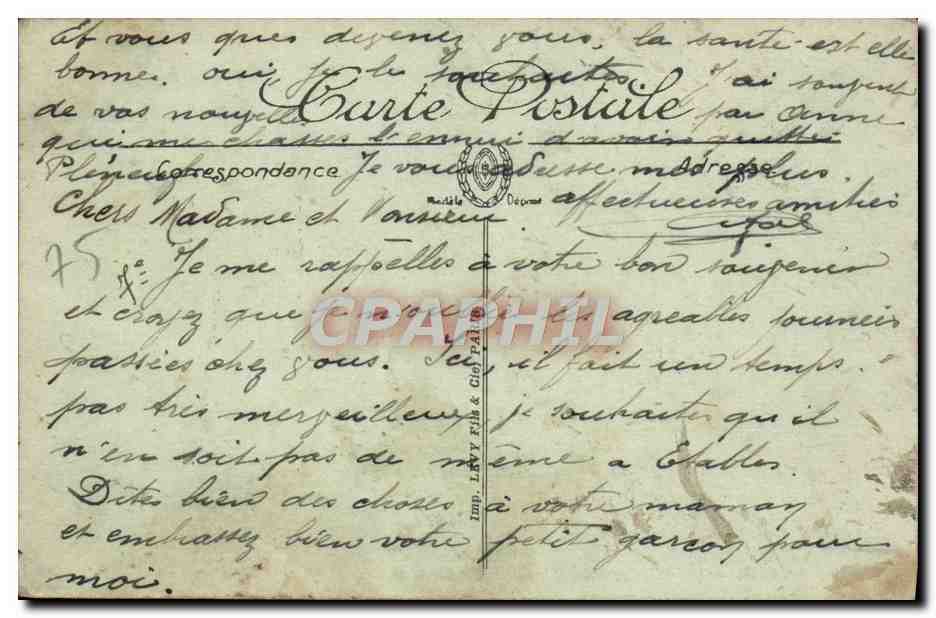 Et vous que devenez vous, la santé est elle
bonne, oui je le souhaites. J'ai souvent
Carte Postale
de vos nouvelles par Anne
qui me chasses l'ennui d'avoir quitté
Correspondance Adresse
Je vous adresse mes plus
Modèle Déposé
affectueuses amitiés
Chers Madame et Monsieur
75
Je me rappelles à votre bon souvenir
et croyez que je n'oublie les agréables journées
passées chez vous. Ici, il fait un temps
pas très merveilleux, je souhaites qu'il
n'en soit pas de même a Etables.
Dites bien des choses à votre maman
et embrassez bien votre petit garçon pour
moi.
Imp. LEVY Fils & Cie, PARIS
CPAPHIL